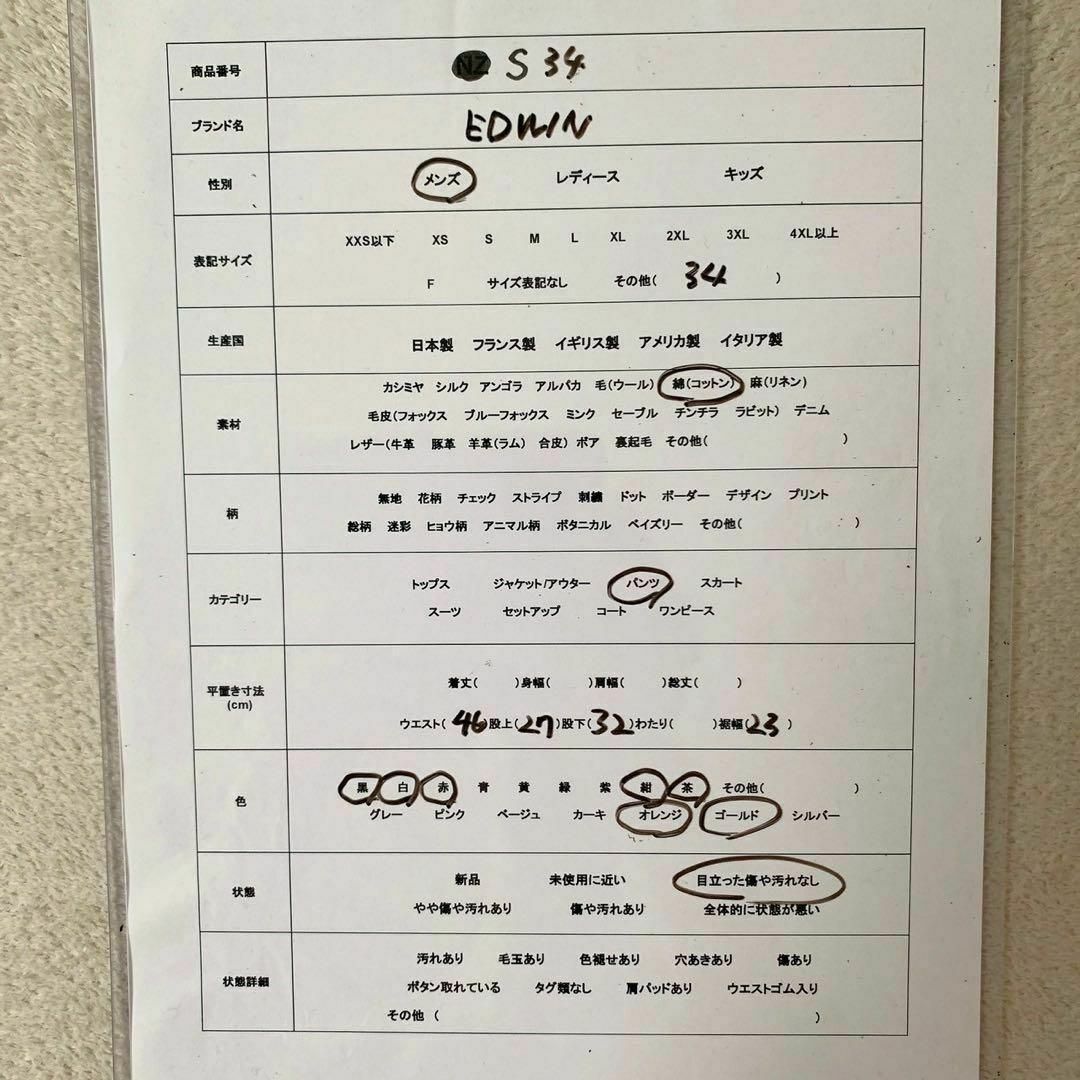 商品番号 NZ S 34
ブランド名 EDWIN
性別 メンズ レディース キッズ
XXS以下 XS S M L XL 2XL 3XL 4XL以上
表記サイズ
F サイズ表記なし その他( 34 )
生産国 日本製 フランス製 イギリス製 アメリカ製 イタリア製
カシミヤ シルク アンゴラ アルパカ 毛(ウール) 綿(コットン) 麻(リネン)
素材 毛皮(フォックス ブルーフォックス ミンク セーブル チンチラ ラビット) デニム
レザー(牛革 豚革 羊革(ラム) 合皮) ボア 裏起毛 その他( )
無地 花柄 チェック ストライプ 刺繍 ドット ボーダー デザイン プリント
柄
総柄 迷彩 ヒョウ柄 アニマル柄 ボタニカル ペイズリー その他( )
トップス ジャケット/アウター パンツ スカート
カテゴリー
スーツ セットアップ コート ワンピース
着丈( )身幅( )肩幅( )総丈( )
平置き寸法
(cm)
ウエスト( 46 )股上( 27 )股下( 32 )わたり( )裾幅( 23 )
黒 白 赤 青 黄 緑 紫 紺 茶 その他( )
色
グレー ピンク ベージュ カーキ オレンジ ゴールド シルバー
新品 未使用に近い 目立った傷や汚れなし
状態
やや傷や汚れあり 傷や汚れあり 全体的に状態が悪い
汚れあり 毛玉あり 色褪せあり 穴あきあり 傷あり
状態詳細 ボタン取れている タグ類なし 肩パッドあり ウエストゴム入り
その他 ( )